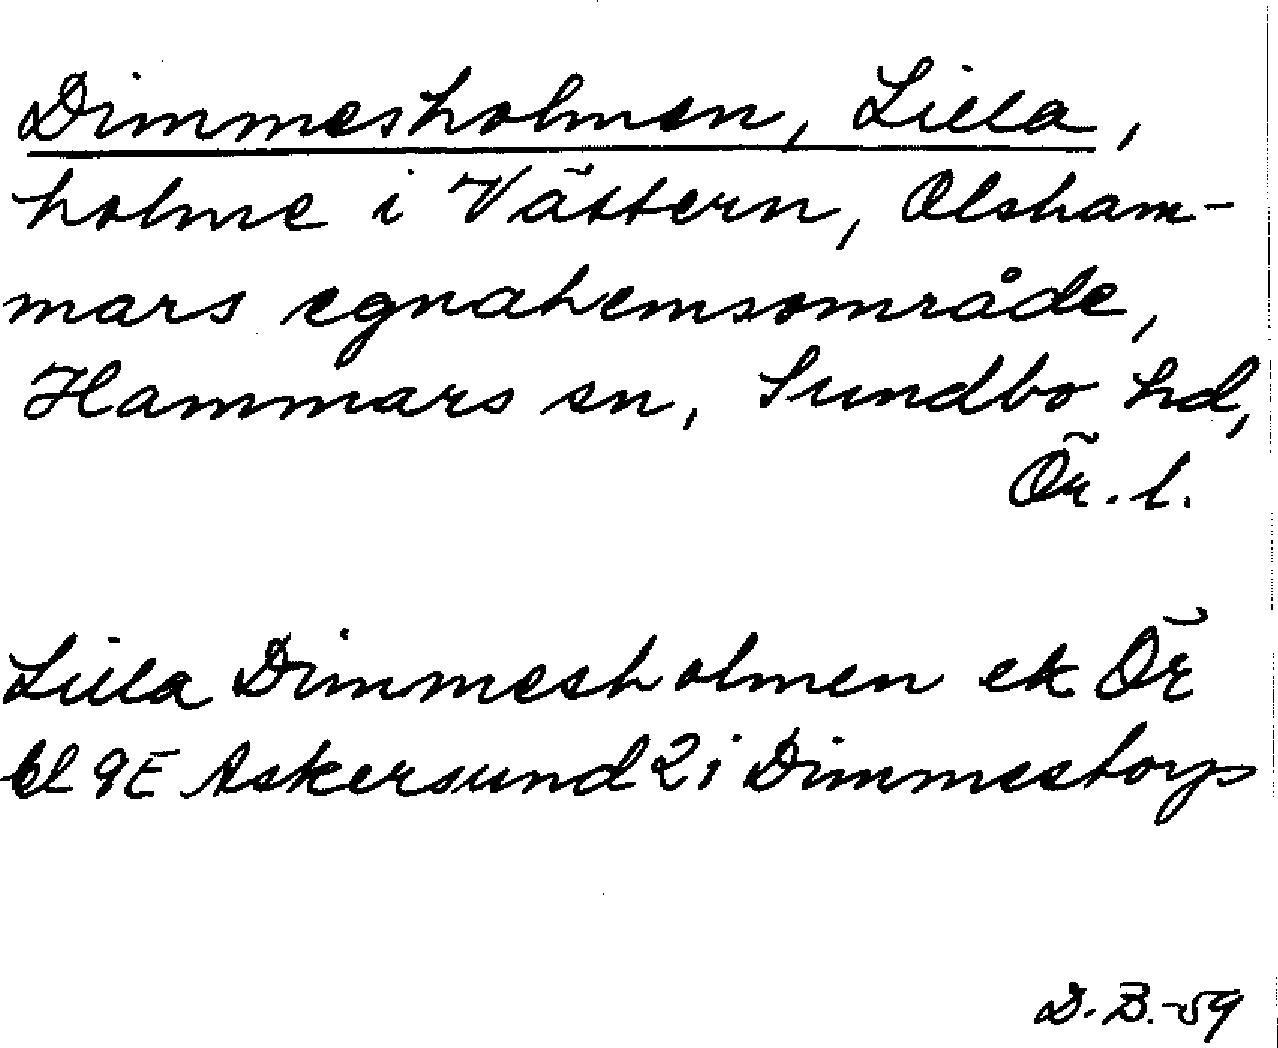 Dimmesholmen, Lilla,
holme i Vättern, Olsham-
mars egnahemsområde,
Hammars sn, Sundbo hd,
Ör. l.
Lilla Dimmesholmen ek Ör
bl 9E Askersund 2 i Dimmestorp
D.B.-59